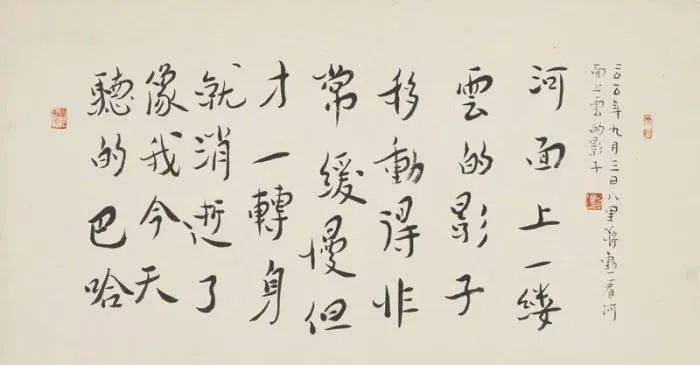 二〇〇五年九月三日八里蔣勳看河
面上雲的影子
河面上一縷
雲的影子
移動得非
常緩慢但
才一轉身
就消逝了
像我今天
聽的巴哈